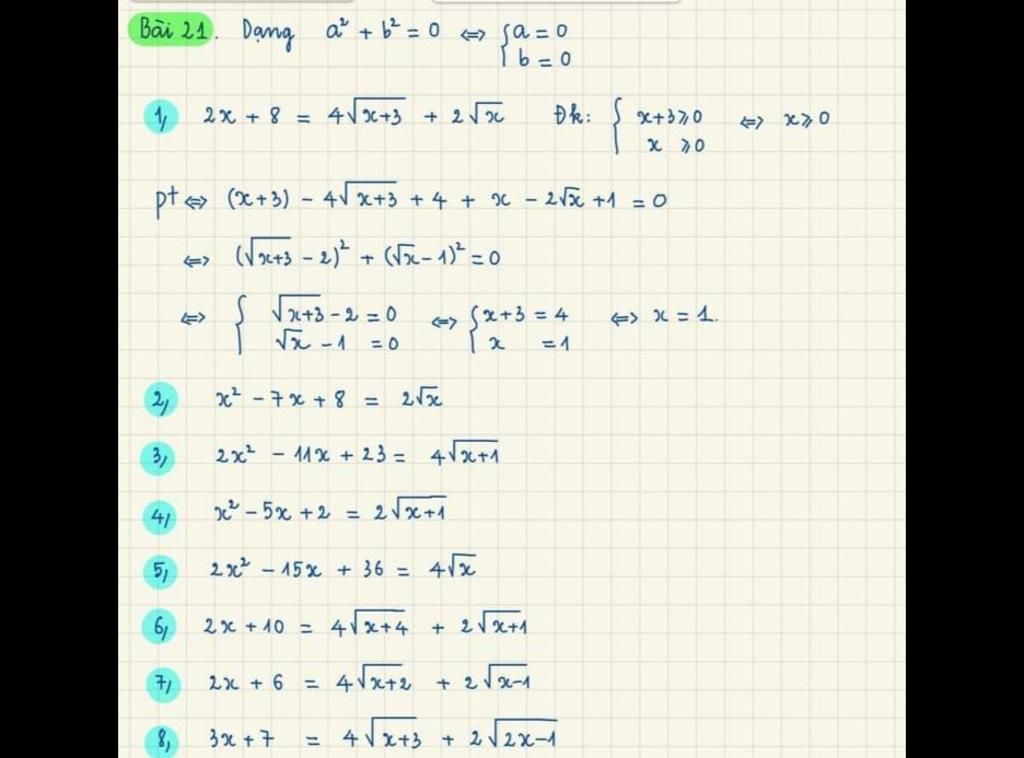 Bài 21. Dạng a² + b² = 0 ⇔ { a = 0
b = 0
1, 2x + 8 = 4√(x+3) + 2√x Đk: { x+3 ⩾ 0 ⇔ x ⩾ 0
x ⩾ 0
pt ⇔ (x+3) - 4√(x+3) + 4 + x - 2√x + 1 = 0
⇔ (√(x+3) - 2)² + (√x - 1)² = 0
⇔ { √(x+3) - 2 = 0 ⇔ { x+3 = 4 ⇔ x = 1.
√x - 1 = 0 x = 1
2, x² - 7x + 8 = 2√x
3, 2x² - 11x + 23 = 4√(x+1)
4, x² - 5x + 2 = 2√(x+1)
5, 2x² - 15x + 36 = 4√x
6, 2x + 10 = 4√(x+4) + 2√(x+1)
7, 2x + 6 = 4√(x+2) + 2√(x-1)
8, 3x + 7 = 4√(x+3) + 2√(2x-1)